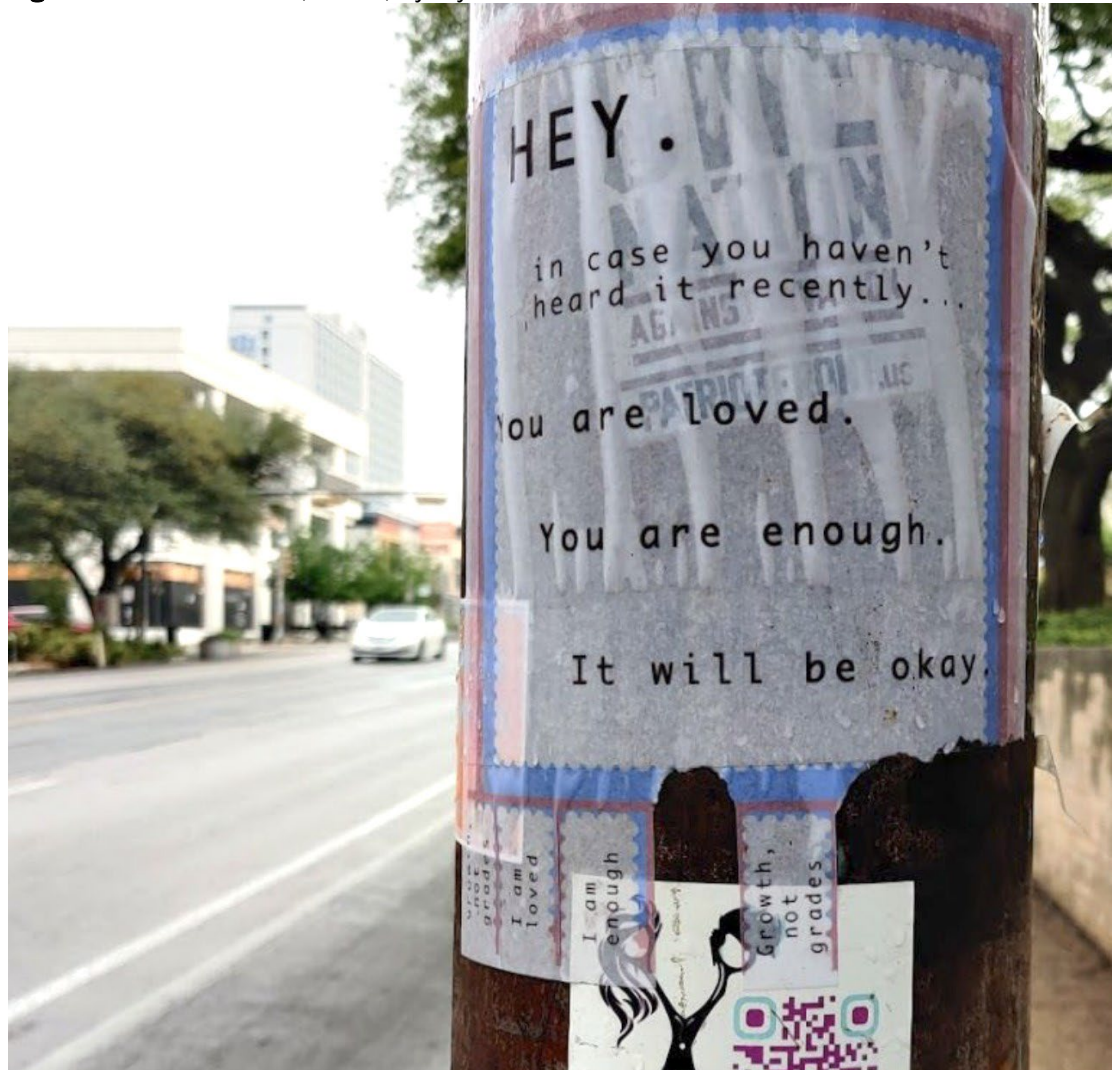 HEY.
in case you haven't
heard it recently...
You are loved.
You are enough.
It will be okay.
NATION
AGAINST
PATRIOT
.us
grades
I am
loved
I am
enough
Growth,
not
grades